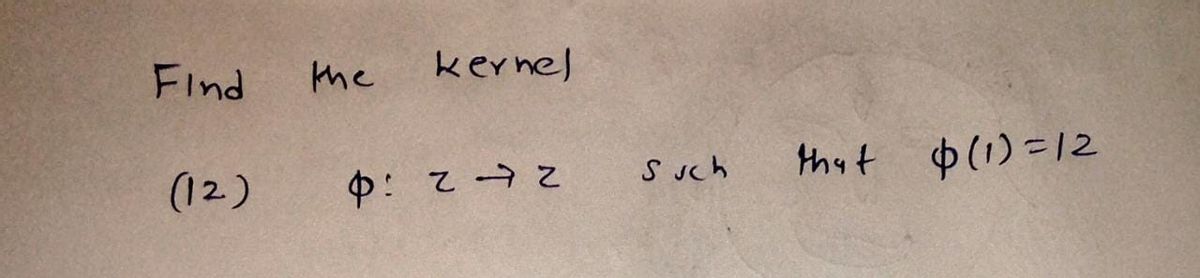 Find the kernel
(12) φ: z → z such that φ(1)=12